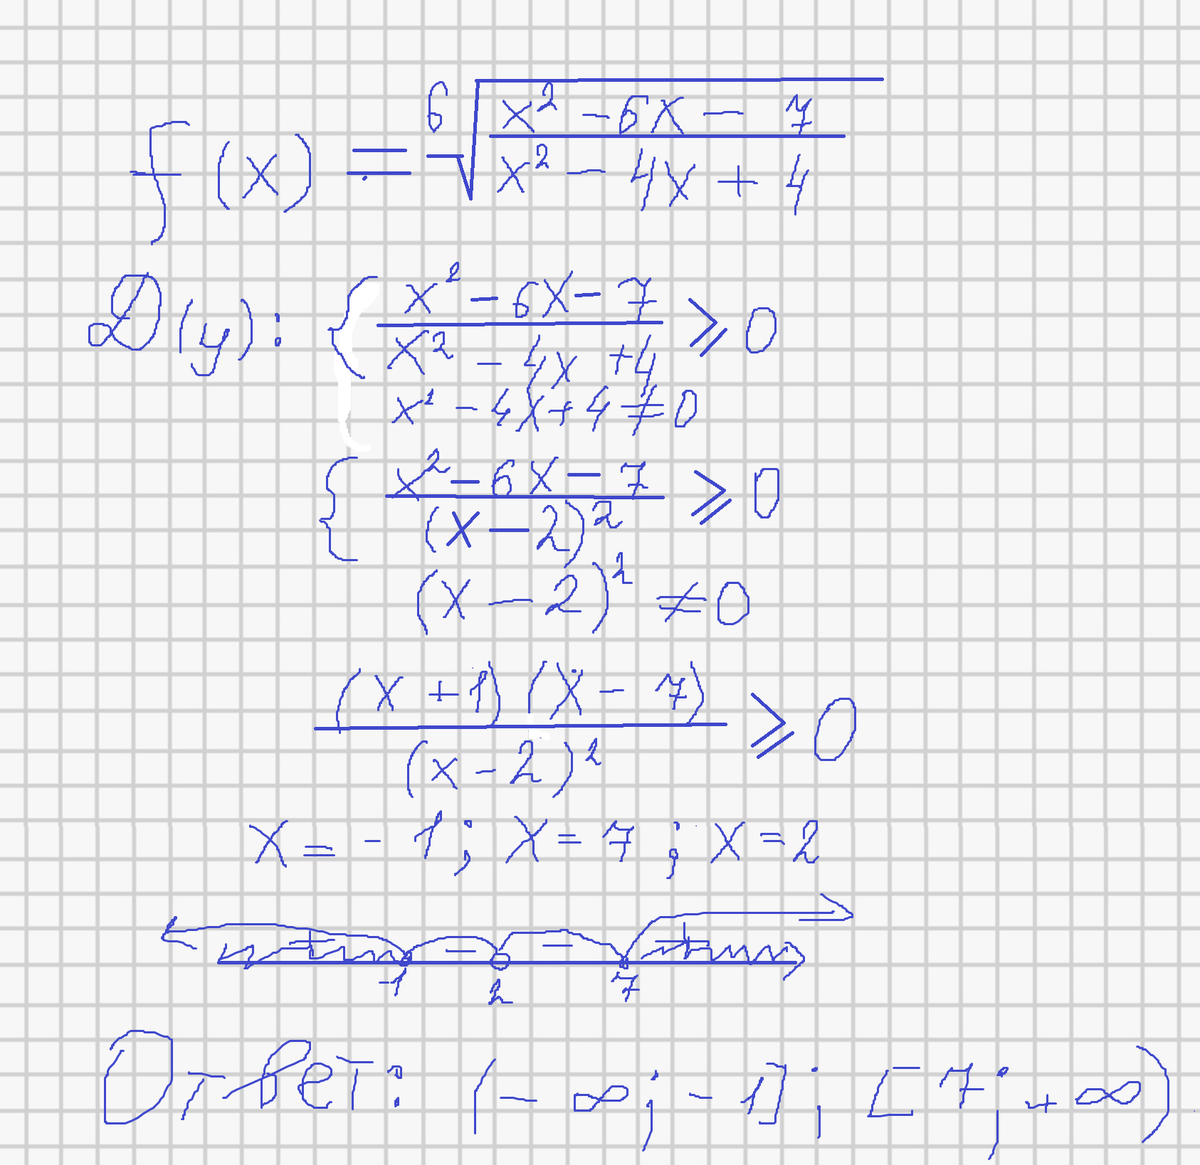 f(x) = ⁶√((x² - 6x - 7)/(x² - 4x + 4))
D(y): { (x² - 6x - 7)/(x² - 4x + 4) ⩾ 0
x² - 4x + 4 ≠ 0
{ (x² - 6x - 7)/(x - 2)² ⩾ 0
(x - 2)² ≠ 0
((x + 1)(x - 7))/(x - 2)² ⩾ 0
x = - 1; x = 7; x = 2
+ - - +
-1 2 7
Ответ: (- ∞; - 1]; [7; + ∞)